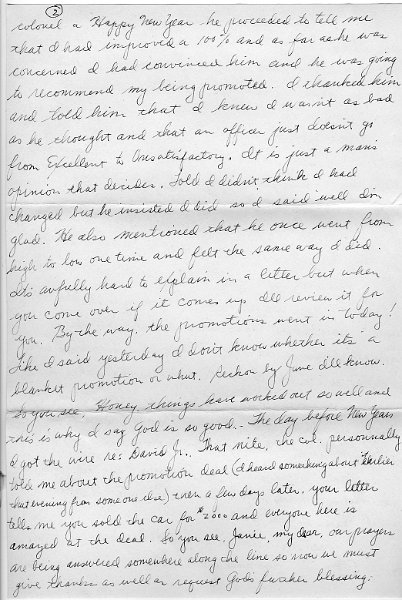 2
colonel a Happy New Year he proceeded to tell me
that I had improved a 100% and as far as he was
concerned I had convinced him and he was going
to recommend my being promoted. I thanked him
and told him that I knew I wasn't as bad
as he thought and that an officer just doesn't go
from Excellent to Unsatisfactory. It is just a mans
opinion that decides. Told I didn't think I had
changed but he insisted I did so I said well I'm
glad. He also mentioned that he once went from
high to low one time and felt the same way I did.
It's awfully hard to explain in a letter but when
you come over if it comes up I'll review it for
you. By the way, the promotions went in today!
Like I said yesterday I don't know whether it's a
blanket promotion or what. Reckon by June I'll know.
So you see, Honey things have worked out so well and
this is why I say God is so good.. The day before New Years
I got the wire re: David Jr., That nite, the col. personnally
told me about the promotion deal (I heard something about it earlier
that evening from someone else) then a few days later, your letter
tells me you sold the car for $2000 and everyone here is
amazed at the deal. So you see, Janie, my dear, our prayers
are being answered somewhere along the line so now we must
give thanks as well as request God's further blessing.